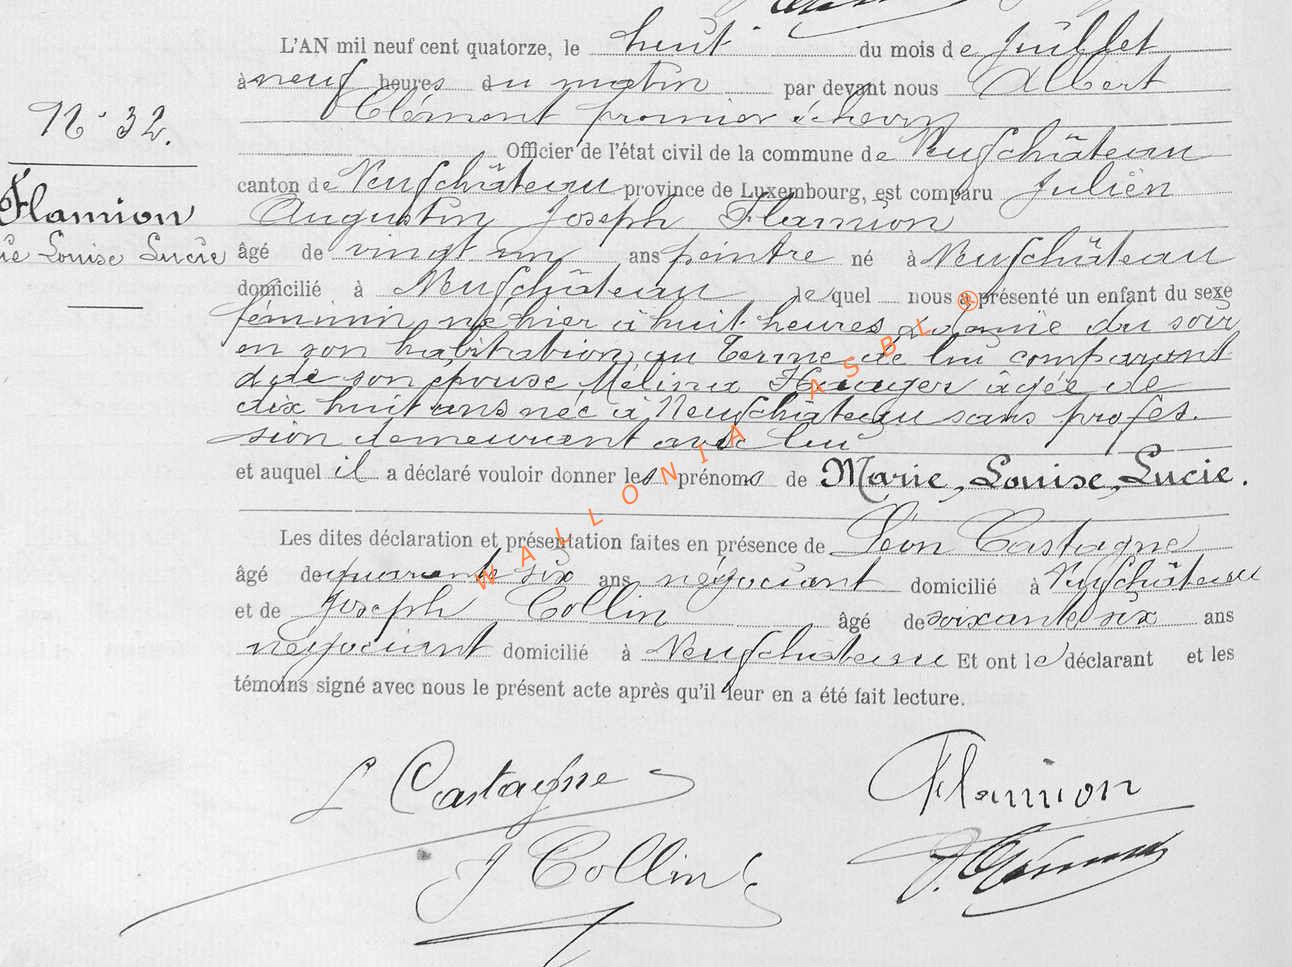 L'AN mil neuf cent quatorze, le huit du mois de Juillet
à neuf heures du matin par devant nous Albert
N° 32. Clément premier échevin
Officier de l'état civil de la commune de Neufchâteau
Flamion canton de Neufchâteau province de Luxembourg, est comparu Julien
Augustin Joseph Flamion
Louise Lucie âgé de vingt un ans peintre né à Neufchâteau
domicilié à Neufchâteau lequel nous a présenté un enfant du sexe
féminin né hier à huit heures et demie du soir
en son habitation, au terme de lui comparant
et de son épouse Mélina âgée de
dix huit ans née à Neufchâteau sans profes.
sion demeurant avec lui
et auquel il a déclaré vouloir donner les prénoms de Marie, Louise, Lucie.
Les dites déclaration et présentation faites en présence de Léon Castagne
âgé de quarante six ans négociant domicilié à Neufchâteau
et de Joseph Collin âgé de soixante six ans
négociant domicilié à Neufchateau Et ont le déclarant et les
témoins signé avec nous le présent acte après qu'il leur en a été fait lecture.
L Castagne Flamion
J Collin
WALLONIA ASBL ®